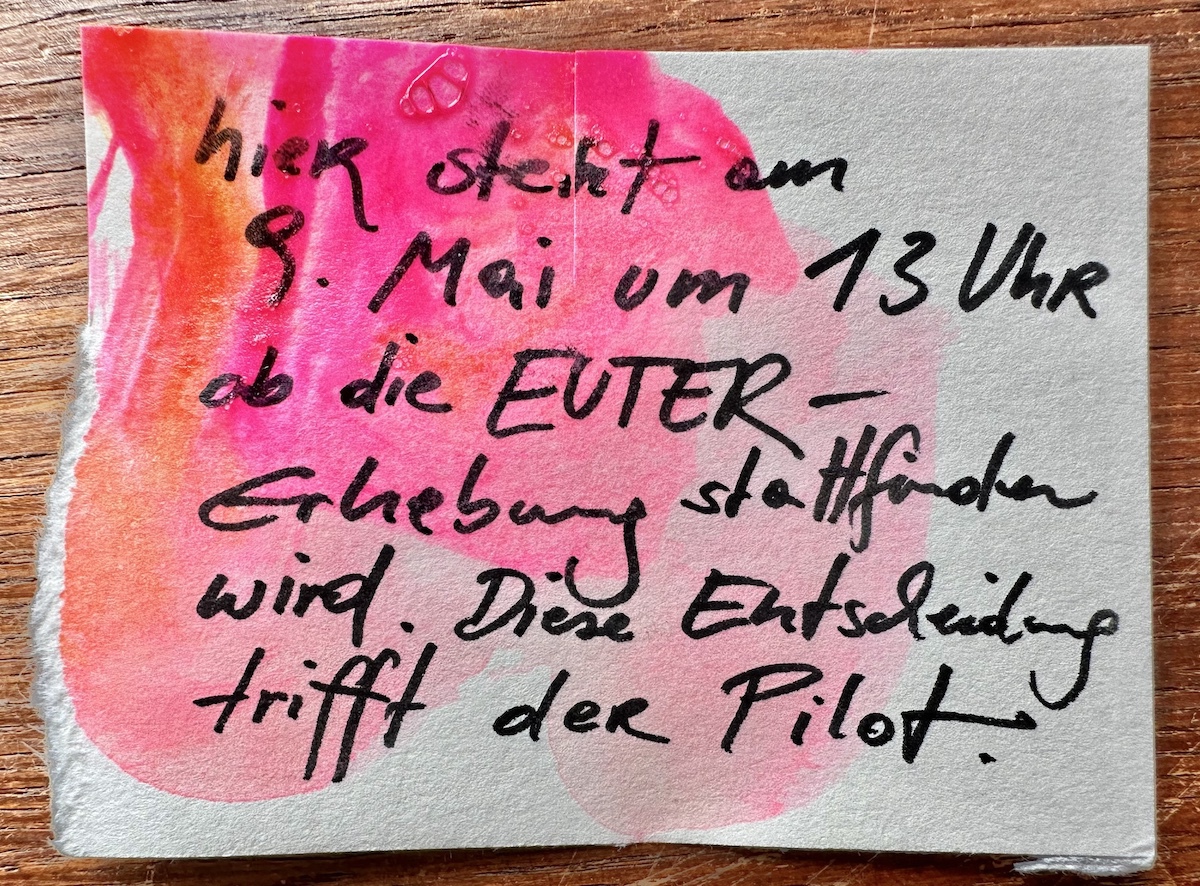 hier steht am
9. Mai um 13 Uhr
ob die EUTER–
Erhebung stattfinden
wird. Diese Entscheidung
trifft der Pilot.